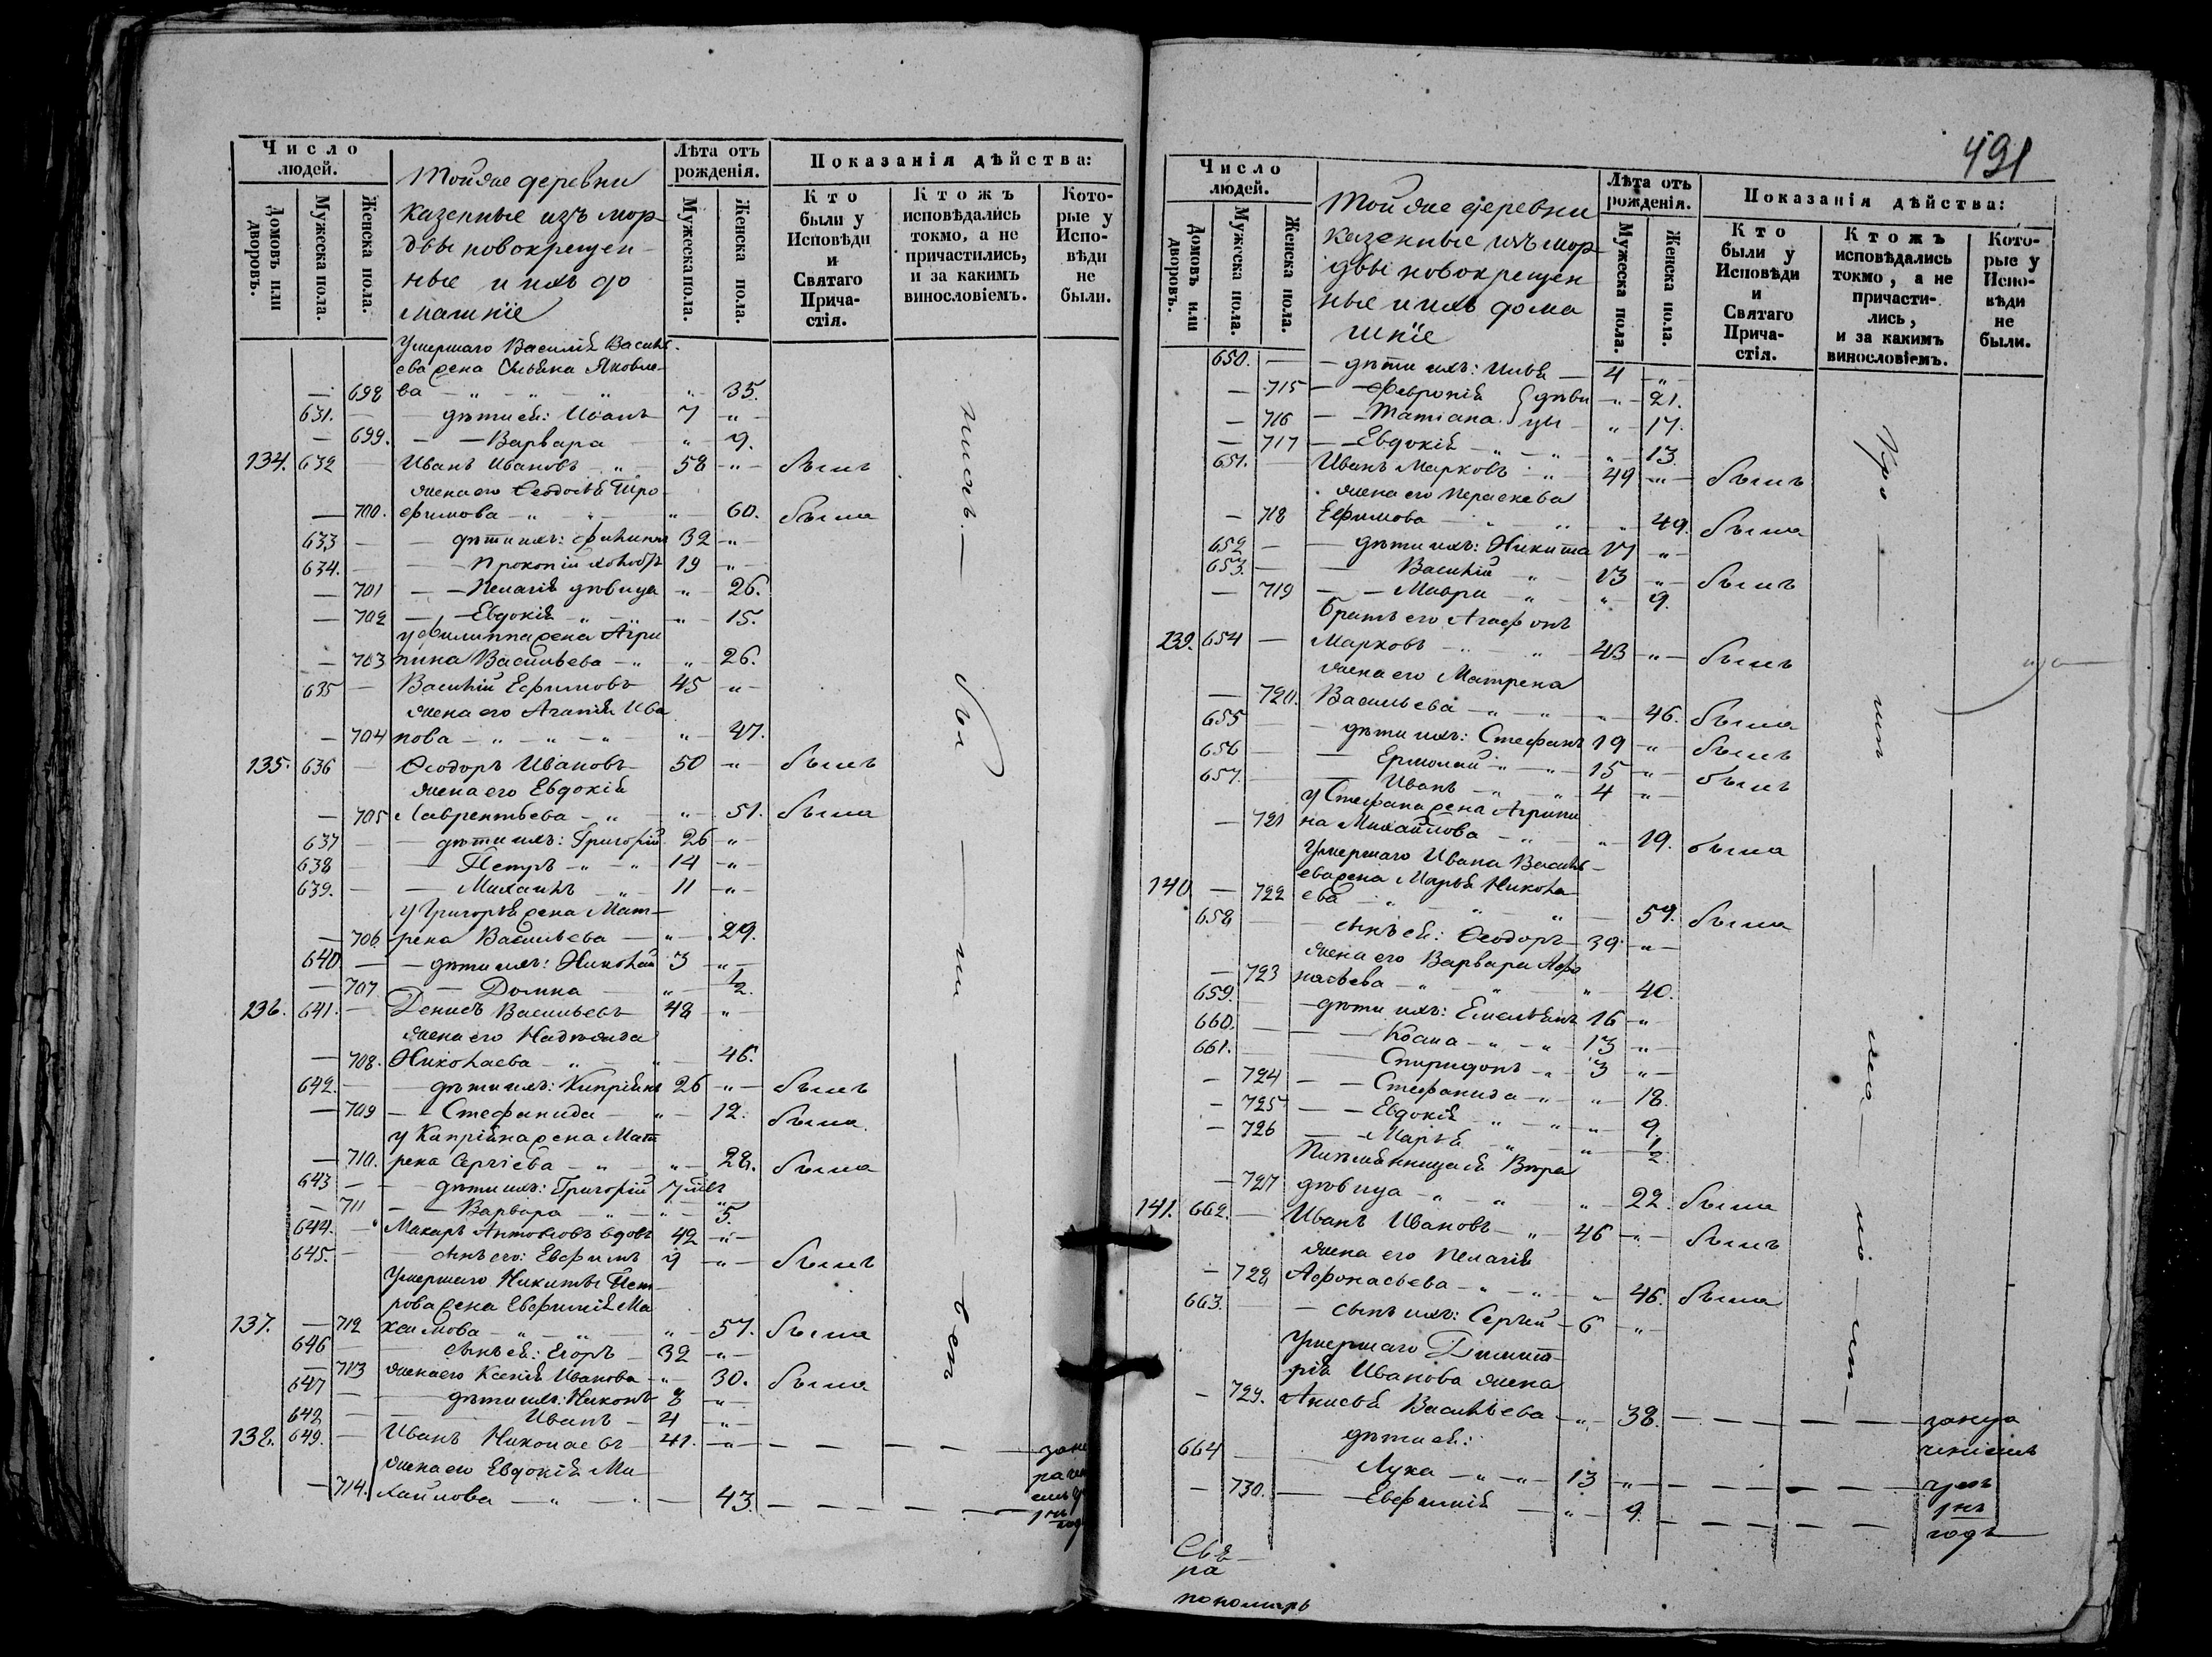 Число людей.
Домовъ или дворовъ.
Мужеска пола.
Женска пола.
Тойже деревни
казенные изъ мор-
двы новокрещен-
ные и ихъ до
машніе
Лѣта отъ рожденія.
Мужеска пола.
Женска пола.
Показанія дѣйства:
Кто были у Исповѣди и Святаго Причастія.
Ктожъ исповѣдались токмо, а не причастились, и за какимъ винословіемъ.
Которые у Исповѣди не были.
Умершаго Василія Василь-
ева жена Яковле-
— 698 ва 35.
631. — дѣти ей: Иванъ 7
— 699. Варвара 9.
134. 632 — Иванъ Ивановъ 58 былъ
жена его Ѳеодосья Тро-
— 700. фимова 60. была
633 — дѣти ихъ: Филиппъ 32
634. Прокопій 19
— 701 Пелагія дѣвица 26.
— 702 Евдокія 15.
у Филиппа жена Агри
— 703 пина Васильева 26.
635 — Василій Ефимовъ 45
жена его Агапія Ива
— 704 нова 47.
135. 636 — Ѳеодоръ Ивановъ 50 былъ
жена его Евдокія
— 705 Лаврентьева 51. была
637 — дѣти ихъ: Григорій 26
638 Петръ 14
639. — Михаилъ 11
у Григорья жена Мат-
— 706. рена Васильева 29.
640 — дѣти ихъ: Николай 3
— 707 Домна 1/2.
136. 641. — Денисъ Васильевъ 48
жена его Надѣжда
— 708. Николаева 46.
642. — дѣти ихъ: Кипріянъ 26 былъ
— 709 Стефанида 12. была
у Кипріяна жена Мат
— 710. рена Сергіева 28. была
643 — дѣти ихъ: Григорій 7
— 711 Варвара 5.
644. — Макаръ Антоновъ вдовъ 42
645. — сынъ его: Евфимъ 9 былъ
Умершаго Никиты Пет-
рова жена Евфимія Ма
137. — 712 ксимова 57. была
646 — сынъ ей: Егоръ 32
— 713 жена его Ксенія Иванова 30. была
647 — дѣти ихъ: Никонъ 8
648 — Иванъ 4
138. 649. — Иванъ Николаевъ 41.
жена его Евдокія Ми-
— 714. хайлова 43.
491
Число людей.
Домовъ или дворовъ.
Мужеска пола.
Женска пола.
Тойже деревни
казенные изъ мор-
двы новокрещен
ные и ихъ дома
шніе
Лѣта отъ рожденія.
Мужеска пола.
Женска пола.
Показанія дѣйства:
Кто были у Исповѣди и Святаго Причастія.
Ктожъ исповѣдались токмо, а не причастились, и за какимъ винословіемъ.
Которые у Исповѣди не были.
650. — дѣти ихъ: Илья 4
— 715 Февронія } дѣви 21.
— 716 Татіана } цы 17.
— 717 Евдокія 13.
651. — Иванъ Марковъ 49 былъ
жена его Параскева
— 718 Ефимова 49. была
652 — дѣти ихъ: Никита 17
653. — Василій 13 былъ
— 719 Мавра 9.
братъ его Агафонъ
139. 654 — Марковъ 43 былъ
жена его Матрена
— 720. Васильева 46. была
655 — дѣти ихъ: Стефанъ 19 былъ
656 — Ермолай 15 былъ
657. Иванъ 4
у Стефана жена Агрипи
— 721 на Михайлова 19. была
Умершаго Ивана Василь-
ева жена Марья Никола
140. — 722 ева 59. была
658 — сынъ ей: Ѳеодоръ 39.
жена его Варвара Афо
— 723 насьева 40.
659. дѣти ихъ: Емельянъ 16
660. — Косма 13
661. Спиридонъ 3
— 724 Стефанида 18.
— 725 Евдокія 9.
— 726 Марья 1/2
Племянница ей Вѣра
— 727 дѣвица 22. была
141. 662. — Иванъ Ивановъ 46 былъ
жена его Пелагія
— 728 Афонасьева 46. была
663. — сынъ ихъ: Сергій 6
Умершаго Димит-
рія Иванова жена
— 729. Анисья Васильева 38.
дѣти ей:
664 Лука 13
— 730. Евфимія 9.
годъ
пономарь